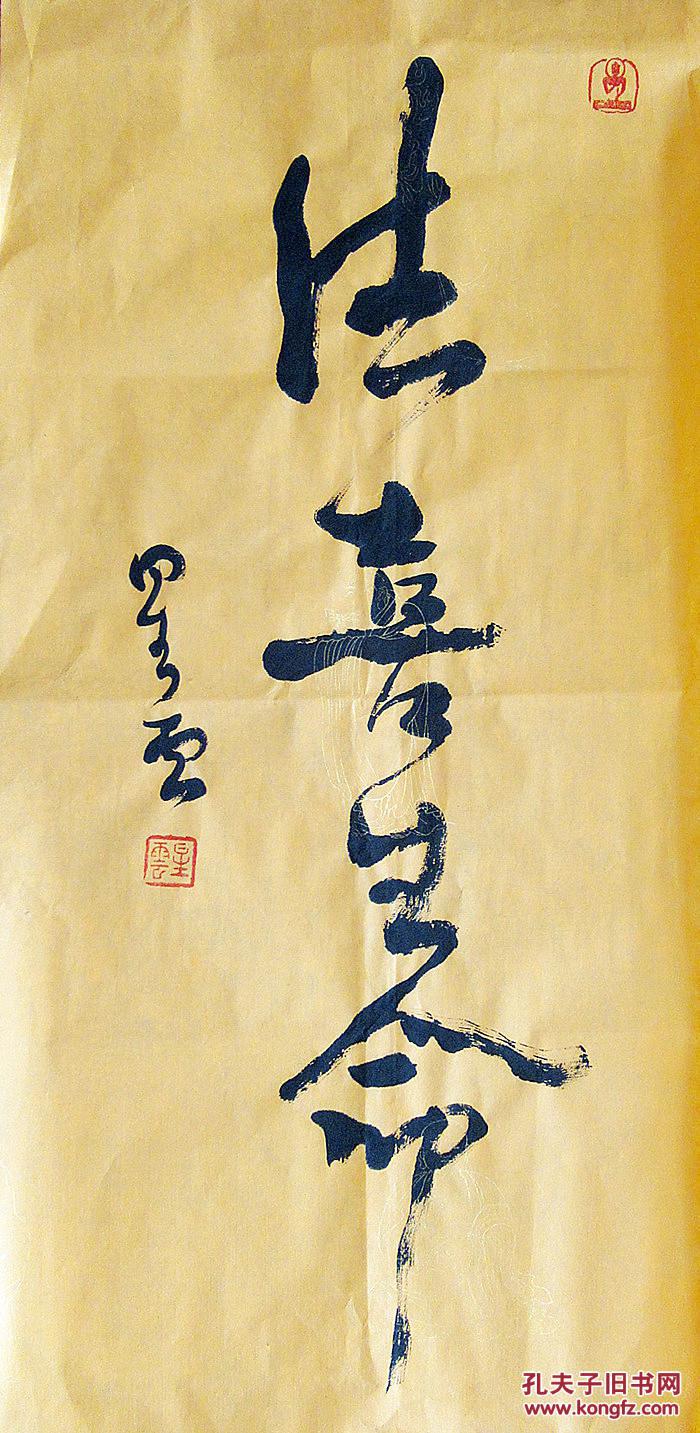 法喜生命
星雲
星雲
孔夫子旧书网
www.kongfz.com